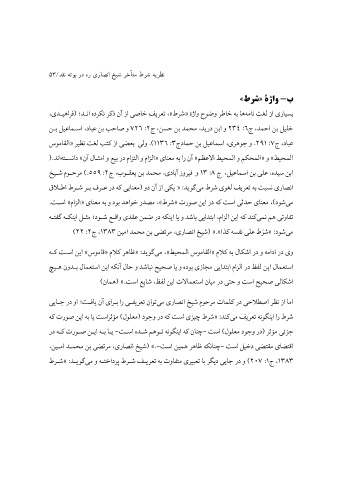 نظریه شرط متأخر شیخ انصاری ره در بوته نقد/ ۵۳
ب- واژهٔ «شرط»
بسیاری از لغت نامه‌ها به خاطر وضوح واژهٔ «شرط»، تعریف خاصی از آن ذکر نکرده اند؛ (فراهیدی،
خلیل بن احمد، ج۶: ۲۳۴ و ابن درید، محمد بن حسن، ج۲: ۷۲۶ و صاحب بن عباد، اسماعیل بن
عباد، ج۷: ۲۹۱. و جوهری، اسماعیل بن حماد ج۳: ۱۱۳۶). ولی بعضی از کتب لغت نظیر «القاموس
المحیط» و «المحکم و المحیط الاعظم» آن را به معنای «الزام و التزام در بیع و امثال آن» دانسته‌اند.(
ابن سیده، علی بن اسماعیل، ج ۸: ۱۳ و فیروز آبادی، محمد بن یعقوب، ج۲: ۵۵۹.) مرحوم شیخ
انصاری نسبت به تعریف لغوی شرط می‌گوید: « یکی از آن دو (معنایی که در عرف بر شرط اطلاق
می‌شود)، معنای حدثی است که در این صورت «شرط»، مصدر خواهد بود و به معنای «الزام» است.
تفاوتی هم نمی‌کند که این الزام، ابتدایی باشد و یا اینکه در ضمن عقدی واقع شود؛ مثل اینکه گفته
می‌شود: «شرَط علی نفسه کذا».» (شیخ انصاری، مرتضی بن محمد امین ۱۳۸۳، ج۲: ۲۲)
وی در ادامه و در اشکال به کلام «القاموس المحیط»، می‌گوید: «ظاهر کلام «قاموس» این است که
استعمال این لفظ در الزام ابتدایی مجازی بوده و یا صحیح نباشد و حال آنکه این استعمال بدون هیچ
اشکالی صحیح است و حتی در میان استعمالات این لفظ، شایع است.» (همان)
اما از نظر اصطلاحی در کلمات مرحوم شیخ انصاری می‌توان تعریفی را برای آن یافت؛ او در جایی
شرط را اینگونه تعریف می‌کند: «شرط چیزی است که در وجود (معلول) مؤثراست یا به این صورت که
جزئی مؤثر (در وجود معلول) است -چنان که اینگونه توهم شده است- یا به این صورت که در
اقتضای مقتضی دخیل است -چنانکه ظاهر همین است-.» (شیخ انصاری، مرتضی بن محمد امین،
۱۳۸۳، ج۱: ۲۰۷) و در جایی دیگر با تعبیری متفاوت به تعریف شرط پرداخته و می‌گوید: «شرط